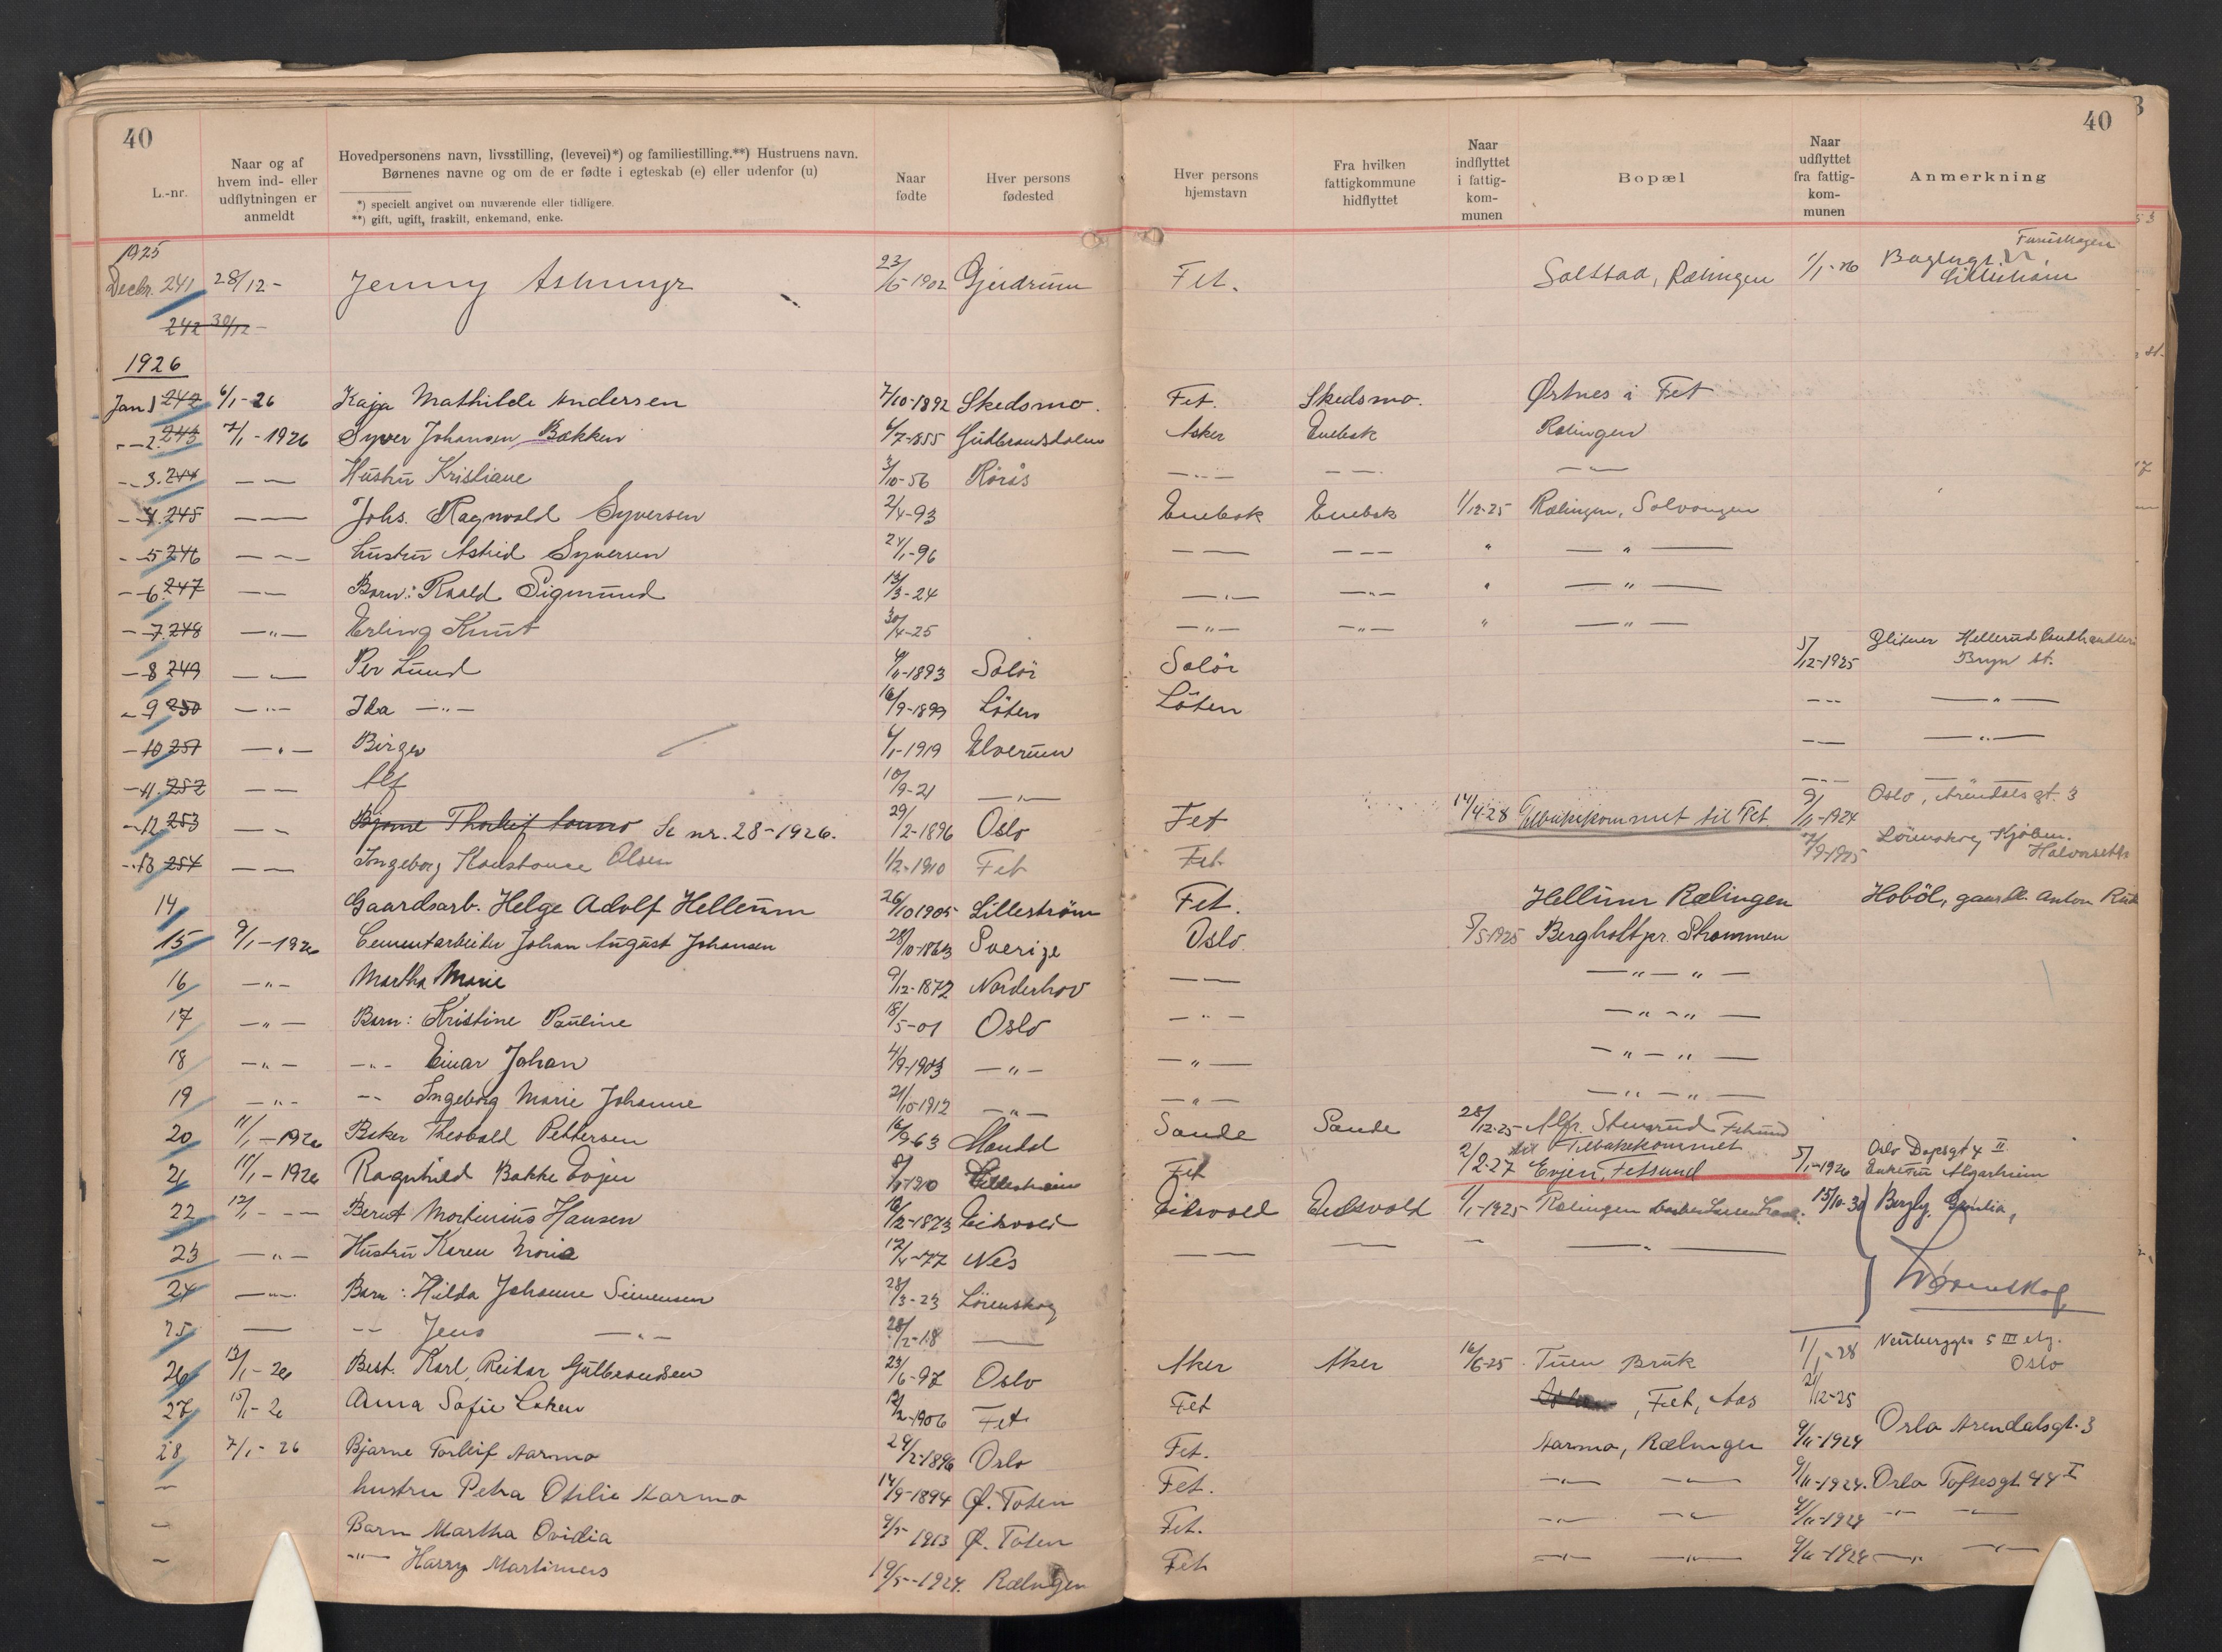 40
40
L.-nr.
Naar og af hvem ind- eller udflytningen er anmeldt
Hovedpersonens navn, livsstilling, (levevei)*) og familiestilling.**) Hustruens navn.
Børnenes navne og om de er fødte i egteskab (e) eller udenfor (u)
*) specielt angivet om nuværende eller tidligere.
**) gift, ugift, fraskilt, enkemand, enke.
Naar fødte
Hver persons fødested
Hver persons hjemstavn
Fra hvilken fattigkommune hidflyttet
Naar indflyttet i fattig-kom-munen
Bopæl
Naar udflyttet fra fattig-kom-munen
Anmerkning
1925
Decbr. 241 28/12 - Jenny 23/5-1902 Gjerdrum Fet. Rælingen 1/1-26 Lillestrøm
242 30/12 -
1926
Jan 1 242 6/1-26 Kaja Mathilde Andersen 7/10-1892 Skedsmo. Fet. Skedsmo. Østnes i Fet
- - 2 243 7/1-1926 Syver Johansen Bakken 6/7-1855 Gudbrandsdalen Asker Enebak Rælingen
- - 3. 244 - - Hustru Kristiane 3/10-56 Rörås - - - - - - -
- - 4. 245 - - Johs. Ragnvald Syversen 2/4-93 Enebak Enebak 1/12-25 Rælingen, Solvangen
- - 5 246 - - - hustru Astrid Syversen 24/1-96 - - - - - " - " -
- - 6. 247 - - Barn: Roald Sigmund 13/3-24 - " - - " - " - " -
- - 7. 248 - " - Erling Knut 30/4-25 - " - - " - " - " -
- 8 249 - - Per Lund 1893 Solör Solör 5/12-1925 Hellerud Landhandleri Bryn st.
- 9 250 - " - Ida - " - 16/9-1899 Löten Löten - - - " -
- 10 251 - " - Birger 6/1-1919 Elverum - - - " -
- 11. 252 - - Alf 10/9-21 - " - - - -
- 12 253 - - Bjarne Thorleif Se nr. 28-1926. 29/2-1896 Oslo Fet 14/4-28 Tilbakekommet til Fet. 9/11-1924 Oslo, Arendalsgt. 3
- 13 254 - - Ingeborg Konstance Olsen 1/2-1910 Fet Fet. 1925 Lörenskog Kjöbm.
14 Gaardsarb. Helge Adolf Hellerum 26/10 1905 Lilleström Fet. Rælingen Hoböl, gaardbr. Anton
15 9/1-1926 Cementarbeider Johan August Johansen 28/10-1863 Sverige Oslo. 5/5-1925 Bergholt pr. Strømmen
16 - " - Martha Marie 9/12-1872 Norderhov - - - " - " -
17 - " - Barn: Kristine Pauline 18/5-01 Oslo - " - - " - " -
18 - " - - " - Einar Johan 4/9-1903 - " - - " - - " - " -
19 - " - - - Ingeborg Marie Johanne 21/10-1912 - " - - " - - " - " -
20 11/1-1926 Baker Theobald Pettersen 16/9-63 Sande Sande 28/12-25 Alfr. Stensrud Fetsund
21 11/1-1926 Ragnhild Bakke Evjen 1910 Lillestrøm Fet 2/2-27 til Tilbakekommet Evjen, Fetsund 5/1-1926 Oslo Dopsgt 4 II.
22 12/1 - - - Bernt Martinius Hansen 16/2-1873 Eidsvold Eidsvold Eidsvold 1/1-1925 Rælingen 15/10-30 Bergly,
23 - " - Hustru Karen Maria 12/4-77 Nes - - - - - " -
24 - " - Barn: Hilda Johanne Simensen 28/3-23 Lörenskog Lørenskog
25 - - - Jens - " - 28/2-18 -
26 13/1-26 Best. Karl Reidar Gulbrandsen 23/6-97 Oslo Aker Aker 16/6-25 Tuen Bruk 1/1-28 5 III etg. Oslo
27 15/1-26 Anna Sofie Løken 12/2-1906 Fet. Fet , Fet, Aas 21/12-25
28 7/1-26 Bjarne Torleif Aarmo 29/2-1896 Oslo Fet. Aarmo, Rælingen 9/11-1924 Oslo Arendalsgt. 3
- hustru Petra Otilie Aarmo 14/9-1894 Ø. Toten Fet. - " - - " - 9/11-1924. Oslo Toftesgt 44 I
- Barn Martha Ovidia 9/5-1913 Ø. Toten Fet. - " - - " - 9/11-1924 - " - -
- - " - Harry Martinius 19/5-1924. Rælingen Fet - " - - " - 9/11-1924 - " - - " -